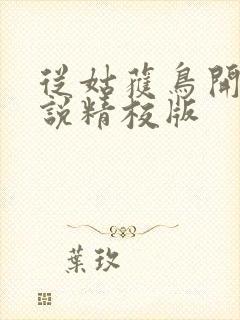 從姑蔤鳥開
說精校版
葉玖